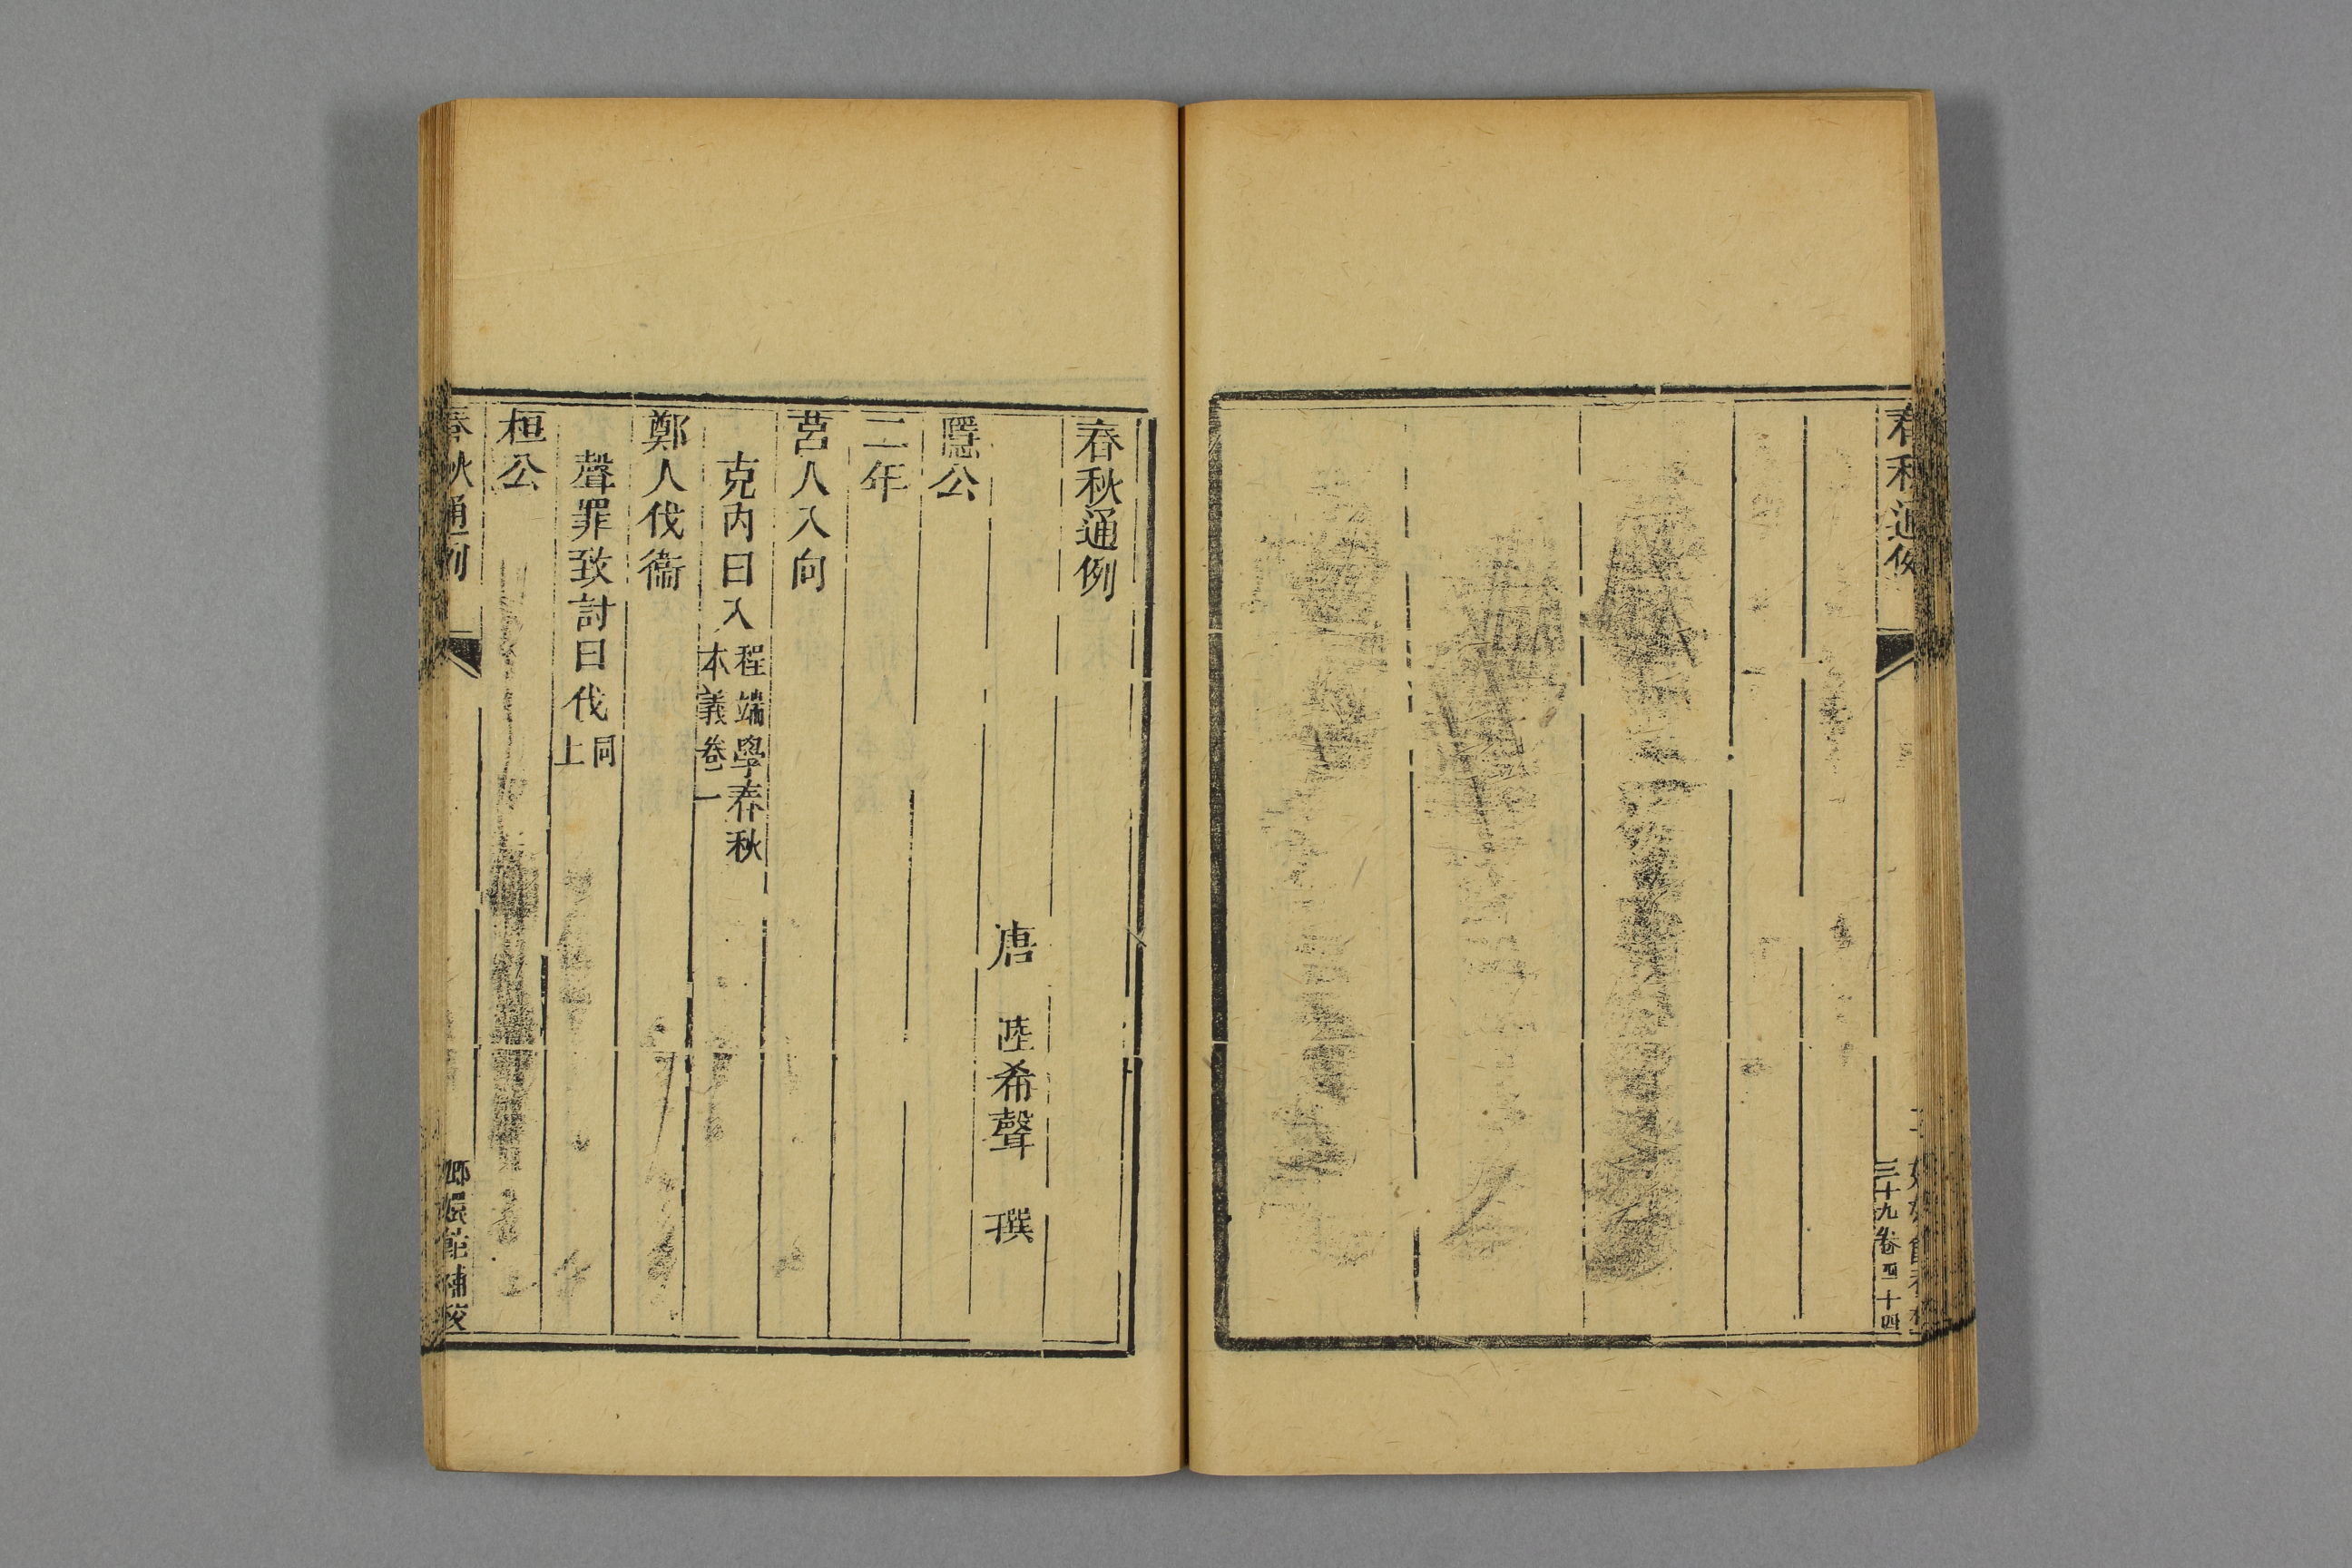 春秋通
三十九卷四十四
春秋通例
唐　陸希聲　撰
隱公
二年
莒人入向
克內曰入程端學春秋
本義卷一
鄭人伐衞
聲罪致討曰伐同
上
桓公
春秋通例
鄉嬛館補校